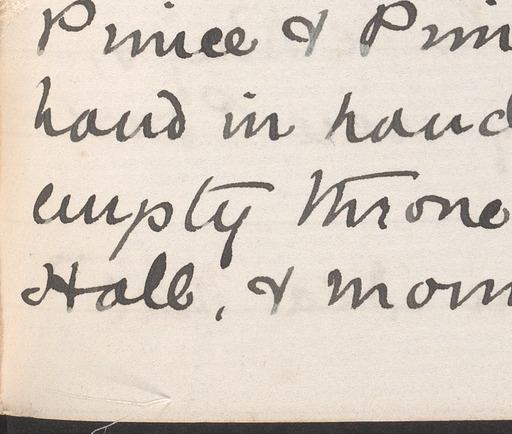 Prince & Prin
hand in hand
empty throne
Hall, & mom